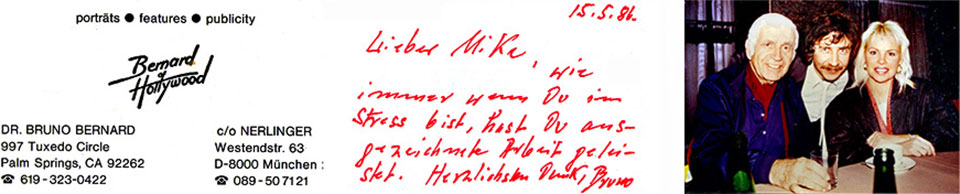 porträts ● features ● publicity
Bernard
of
Hollywood
DR. BRUNO BERNARD
997 Tuxedo Circle
Palm Springs, CA 92262
☎ 619-323-0422
c/o NERLINGER
Westendstr. 63
D-8000 München :
☎ 089-507121
15.5.86.
Lieber Mika,
wie
immer wenn Du im
Stress bist, hast Du aus-
gezeichnete Arbeit gelei-
stet. Herzlichsten Dank, Bruno